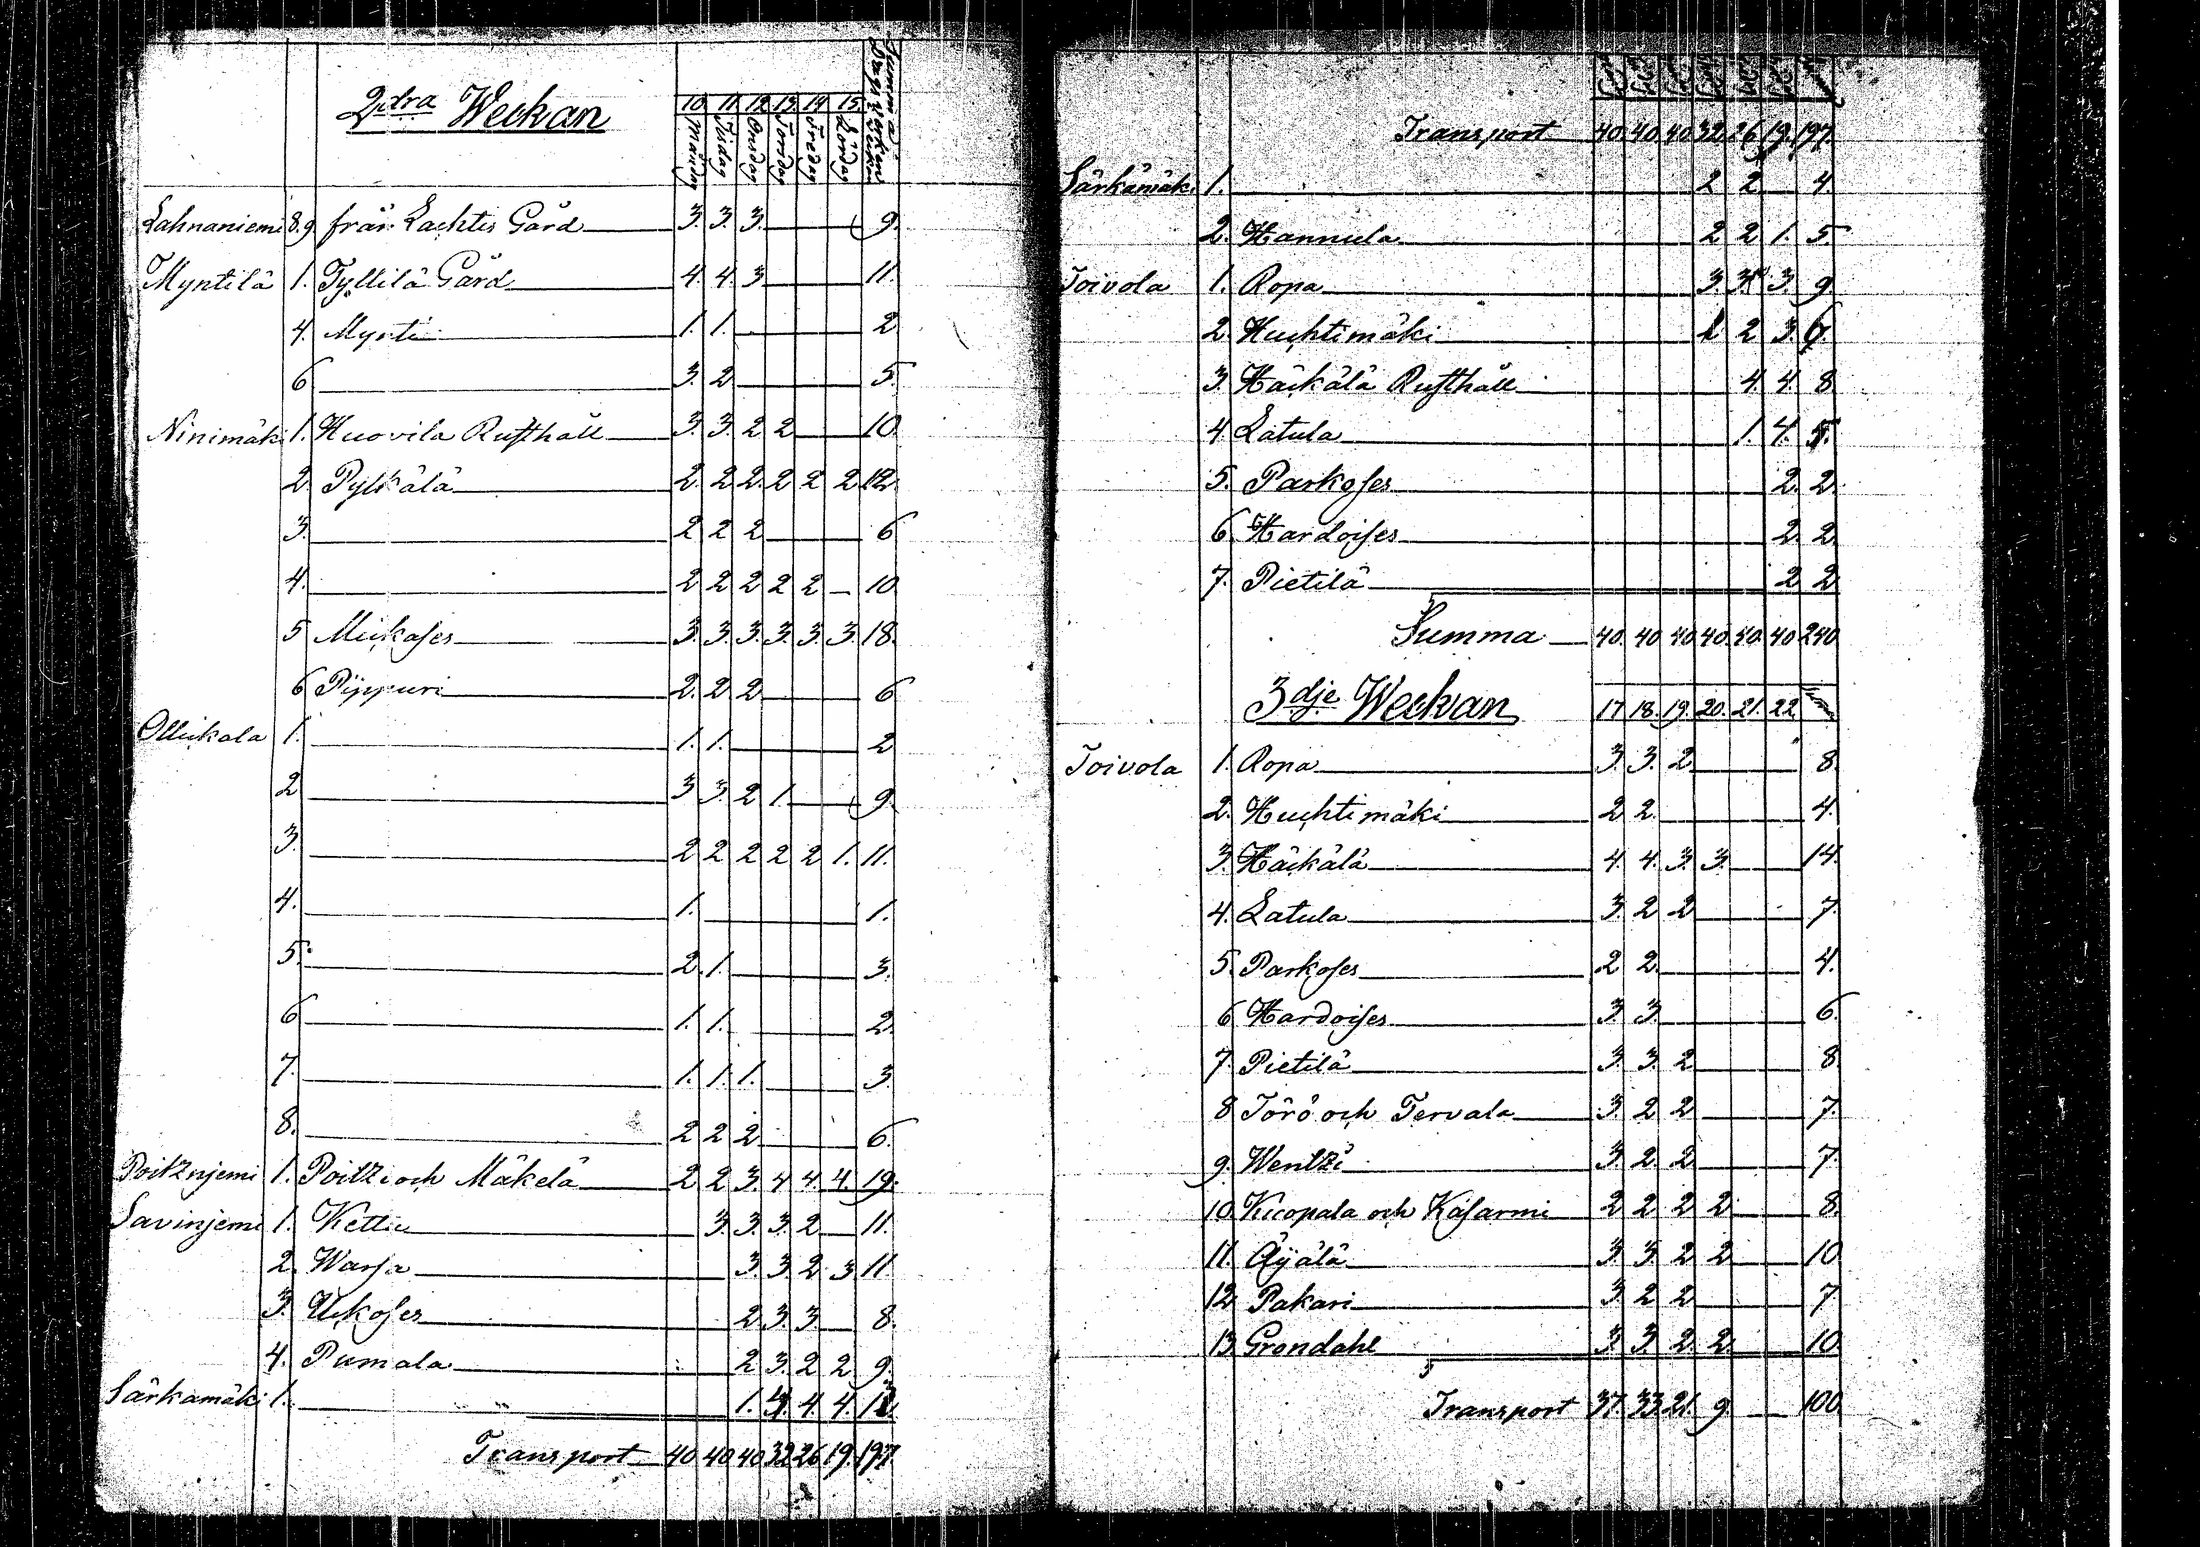 2dra Weckan 10. 11. 12. 13. 14. 15. Summa
Måndag Tisdag Onsdag Torsdag Fredag Lördag
Lahnaniemi 8.9. från Lachtis Gård 3. 3. 3. 9.
Myntilä 1. Tyllilä Gård 4. 4. 3 11.
4. Mynti 1. 1. 2
6 3. 2 5.
Ninimäki 1. Huovila Rusthåll 3. 3. 2 2 10
2. Pylkälä 2. 2 2. 2 2 2 12.
3. 2 2 2 6
4. 2 2 2 2 2 10
5 Mickoses 3. 3. 3. 3. 3. 3. 18.
6 Pippuri 2. 2. 2 6
Ollikala 1. 1. 1. 2
2 3 3. 2 1. 9.
3. 2 2 2 2 2 1. 11.
4. 1. 1.
5. 2. 1. 3.
6 1. 1. 2.
7. 1. 1. 1. 3.
8. 2 2 2 6.
Poitznjemi 1. Poitzi och Mäkelä 2 2 3. 4 4. 4 19.
Savinjemi 1. Kettu 3. 3. 3 2 11.
2. Warsa 3. 3. 2. 3 11
3. Uckoses 2 3. 3. 8.
4. Pumala 2 3. 2 2 9.
Särkamäki 1. 1. 4. 4. 4.
Transport 40 40 40 32 26 19. 197.
Transport 40. 40. 40 32. 26. 19. 197.
Särkämäki 1. 2 2 4
2. Hannula 2 2 1. 5
Toivola 1. Ropa 3. 3. 3. 9
2. Huchtimäki 2 3.
3. Häckälä Rusthåll 4. 4. 8
4. Latula 1. 4. 5.
5. Parkoses 2. 2.
6. Hardoises 2. 2.
7. Pietilä 2 2
Summa 40. 40 40 40. 40. 40 240
3dje Weckan 17 18. 19. 20. 21. 22. Summa
Toivola 1. Ropa 3. 3. 2 8.
2. Huchtimäki 2 2. 4.
3. Häckälä 4. 4. 3. 3. 14.
4. Latula 3. 2 2 7.
5. Parkoses 2 2. 4.
6 Hardoises 3. 3. 6.
7. Pietilä 3. 3. 2 8
8 Törö och Tervala 3. 2 2 7.
9. Wentzi 3. 2. 2 7.
10. Kuopala och Kasarmi 2 2 2 2 8.
11. Äijälä 3. 3. 2 2 10
12. Pakari 3 2 2 7.
13 Grondahl 3. 3. 2. 2. 10
Transport 37. 33. 21. 9. 100.